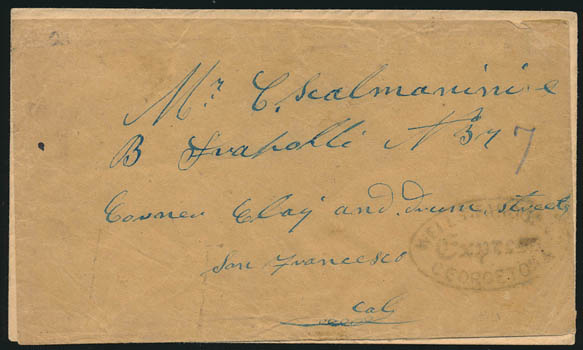 Mr. C. Scalmaninie
B Frapolli No 37 7
Corner Clay and drum. streets
san Francesco
Cal
WELLS FARGO &
Express
GEORGETOWN